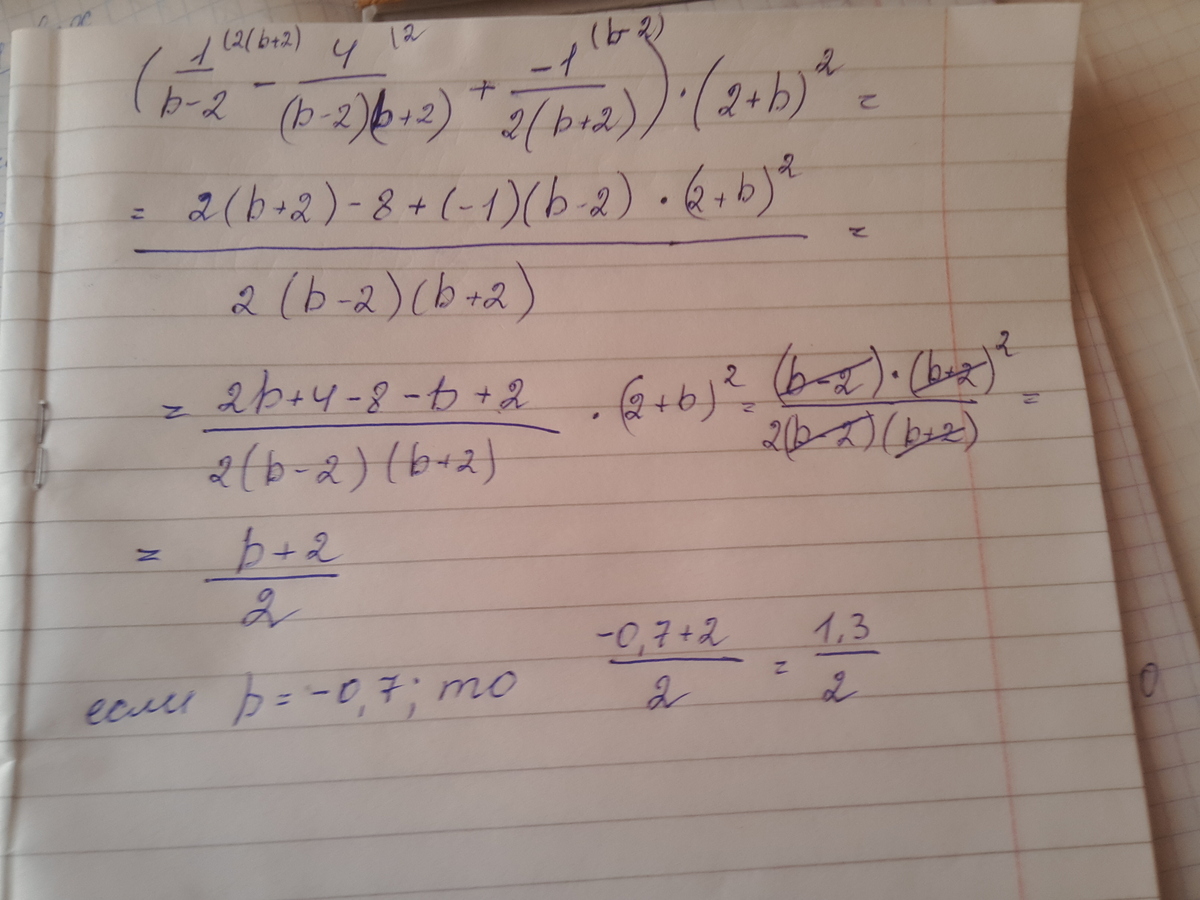 (1/(b-2) ^(2(b+2) - 4/((b-2)(b+2)) ^(2 + -1/(2(b+2)) ^(b-2)) · (2+b)² =
= (2(b+2)-8+(-1)(b-2) · (2+b)²)/(2(b-2)(b+2)) =
= (2b+4-8-b+2)/(2(b-2)(b+2)) · (2+b)² = ((b-2)·(b+2)²)/(2(b-2)(b+2)) =
= (b+2)/2
если b=-0,7; то (-0,7+2)/2 = 1,3/2